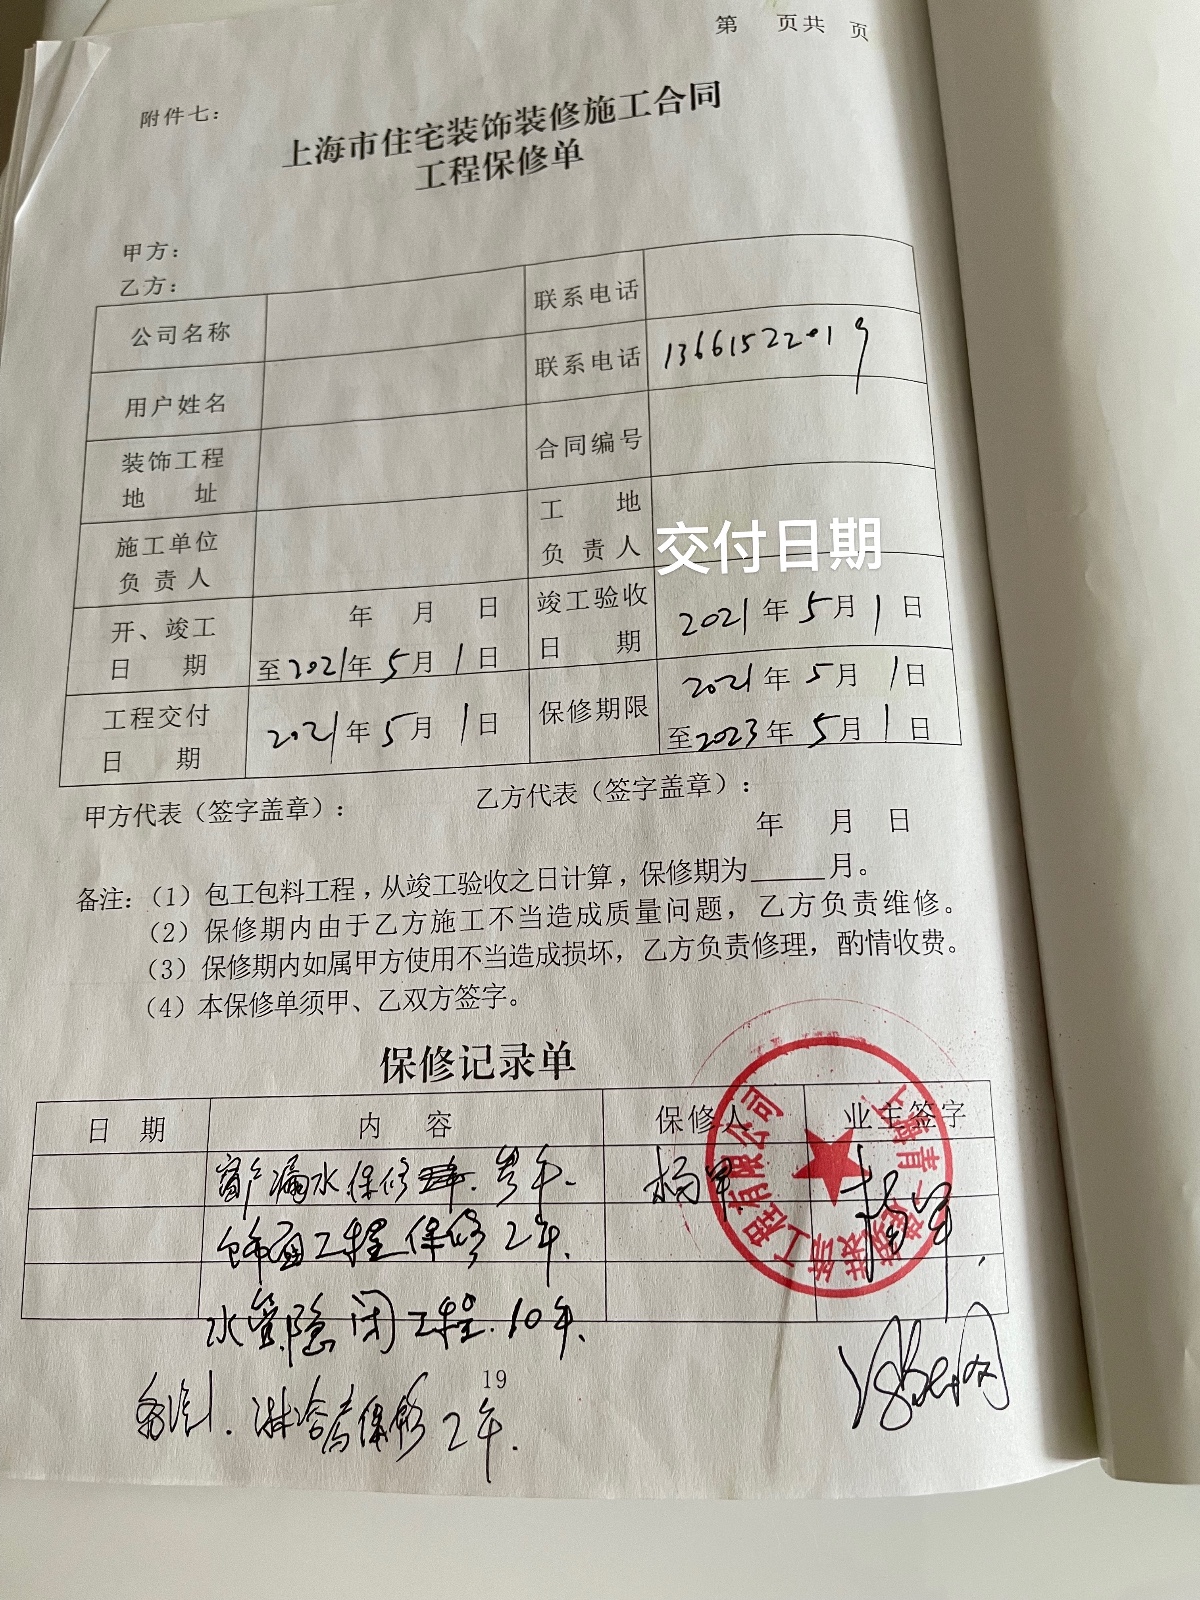 第 页共 页
附件七：
上海市住宅装饰装修施工合同
工程保修单
甲方：
乙方：
公司名称 联系电话
用户姓名 联系电话 13661522019
装饰工程地 址 合同编号
施工单位负责人 工 地负责人
交付日期
开、竣工日 期 年 月 日至2021年5月1日 竣工验收日 期 2021年5月1日
工程交付日 期 2021年5月1日 保修期限 2021年5月1日至2023年5月1日
甲方代表（签字盖章）： 乙方代表（签字盖章）：
年 月 日
备注：（1）包工包料工程，从竣工验收之日计算，保修期为_____月。
（2）保修期内由于乙方施工不当造成质量问题，乙方负责维修。
（3）保修期内如属甲方使用不当造成损坏，乙方负责修理，酌情收费。
（4）本保修单须甲、乙双方签字。
保修记录单
日 期 内 容 保修人 业主签字
窗户漏水保修 年.
饰面工程保修2年.
水管隐闭工程.10年.
19
备注1. 保修2年.
装饰工程有限公司